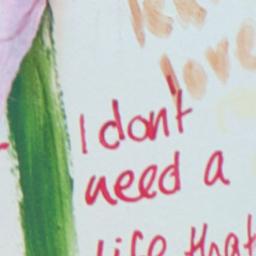 love
I dont
need a
life that